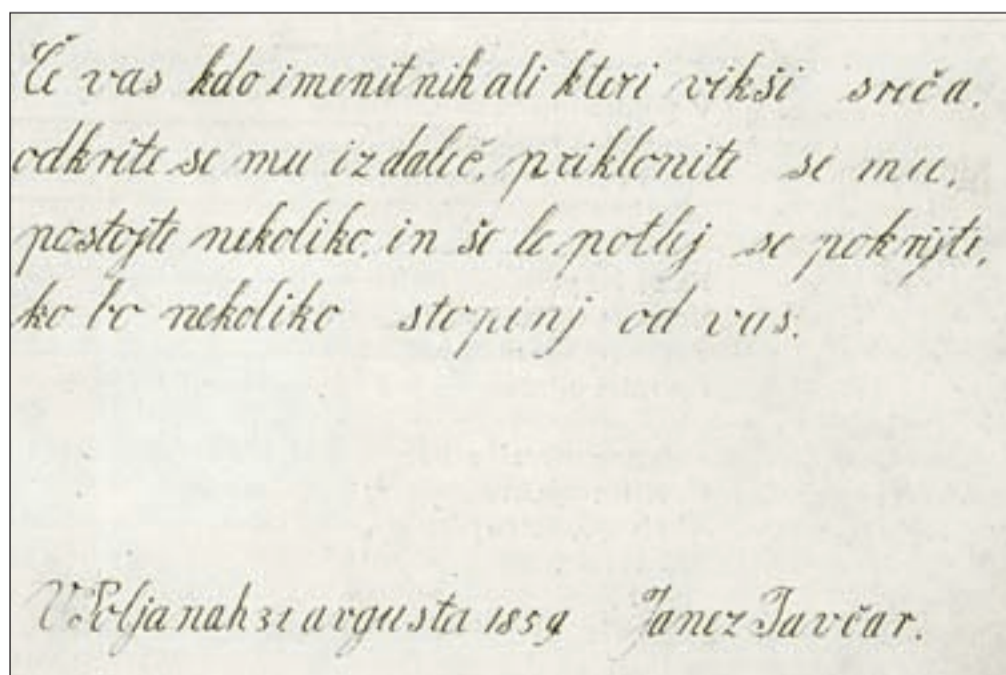 Če vas kdo imenitnih ali kteri vekši sreča,
odkrite se mu iz daleč, priklonite se mu,
postojte nekoliko, in še le potlej se pokrijte,
ko bo nekoliko stopinj od vas.
V Poljanah 31 avgusta 1859 Janez Tavčar.